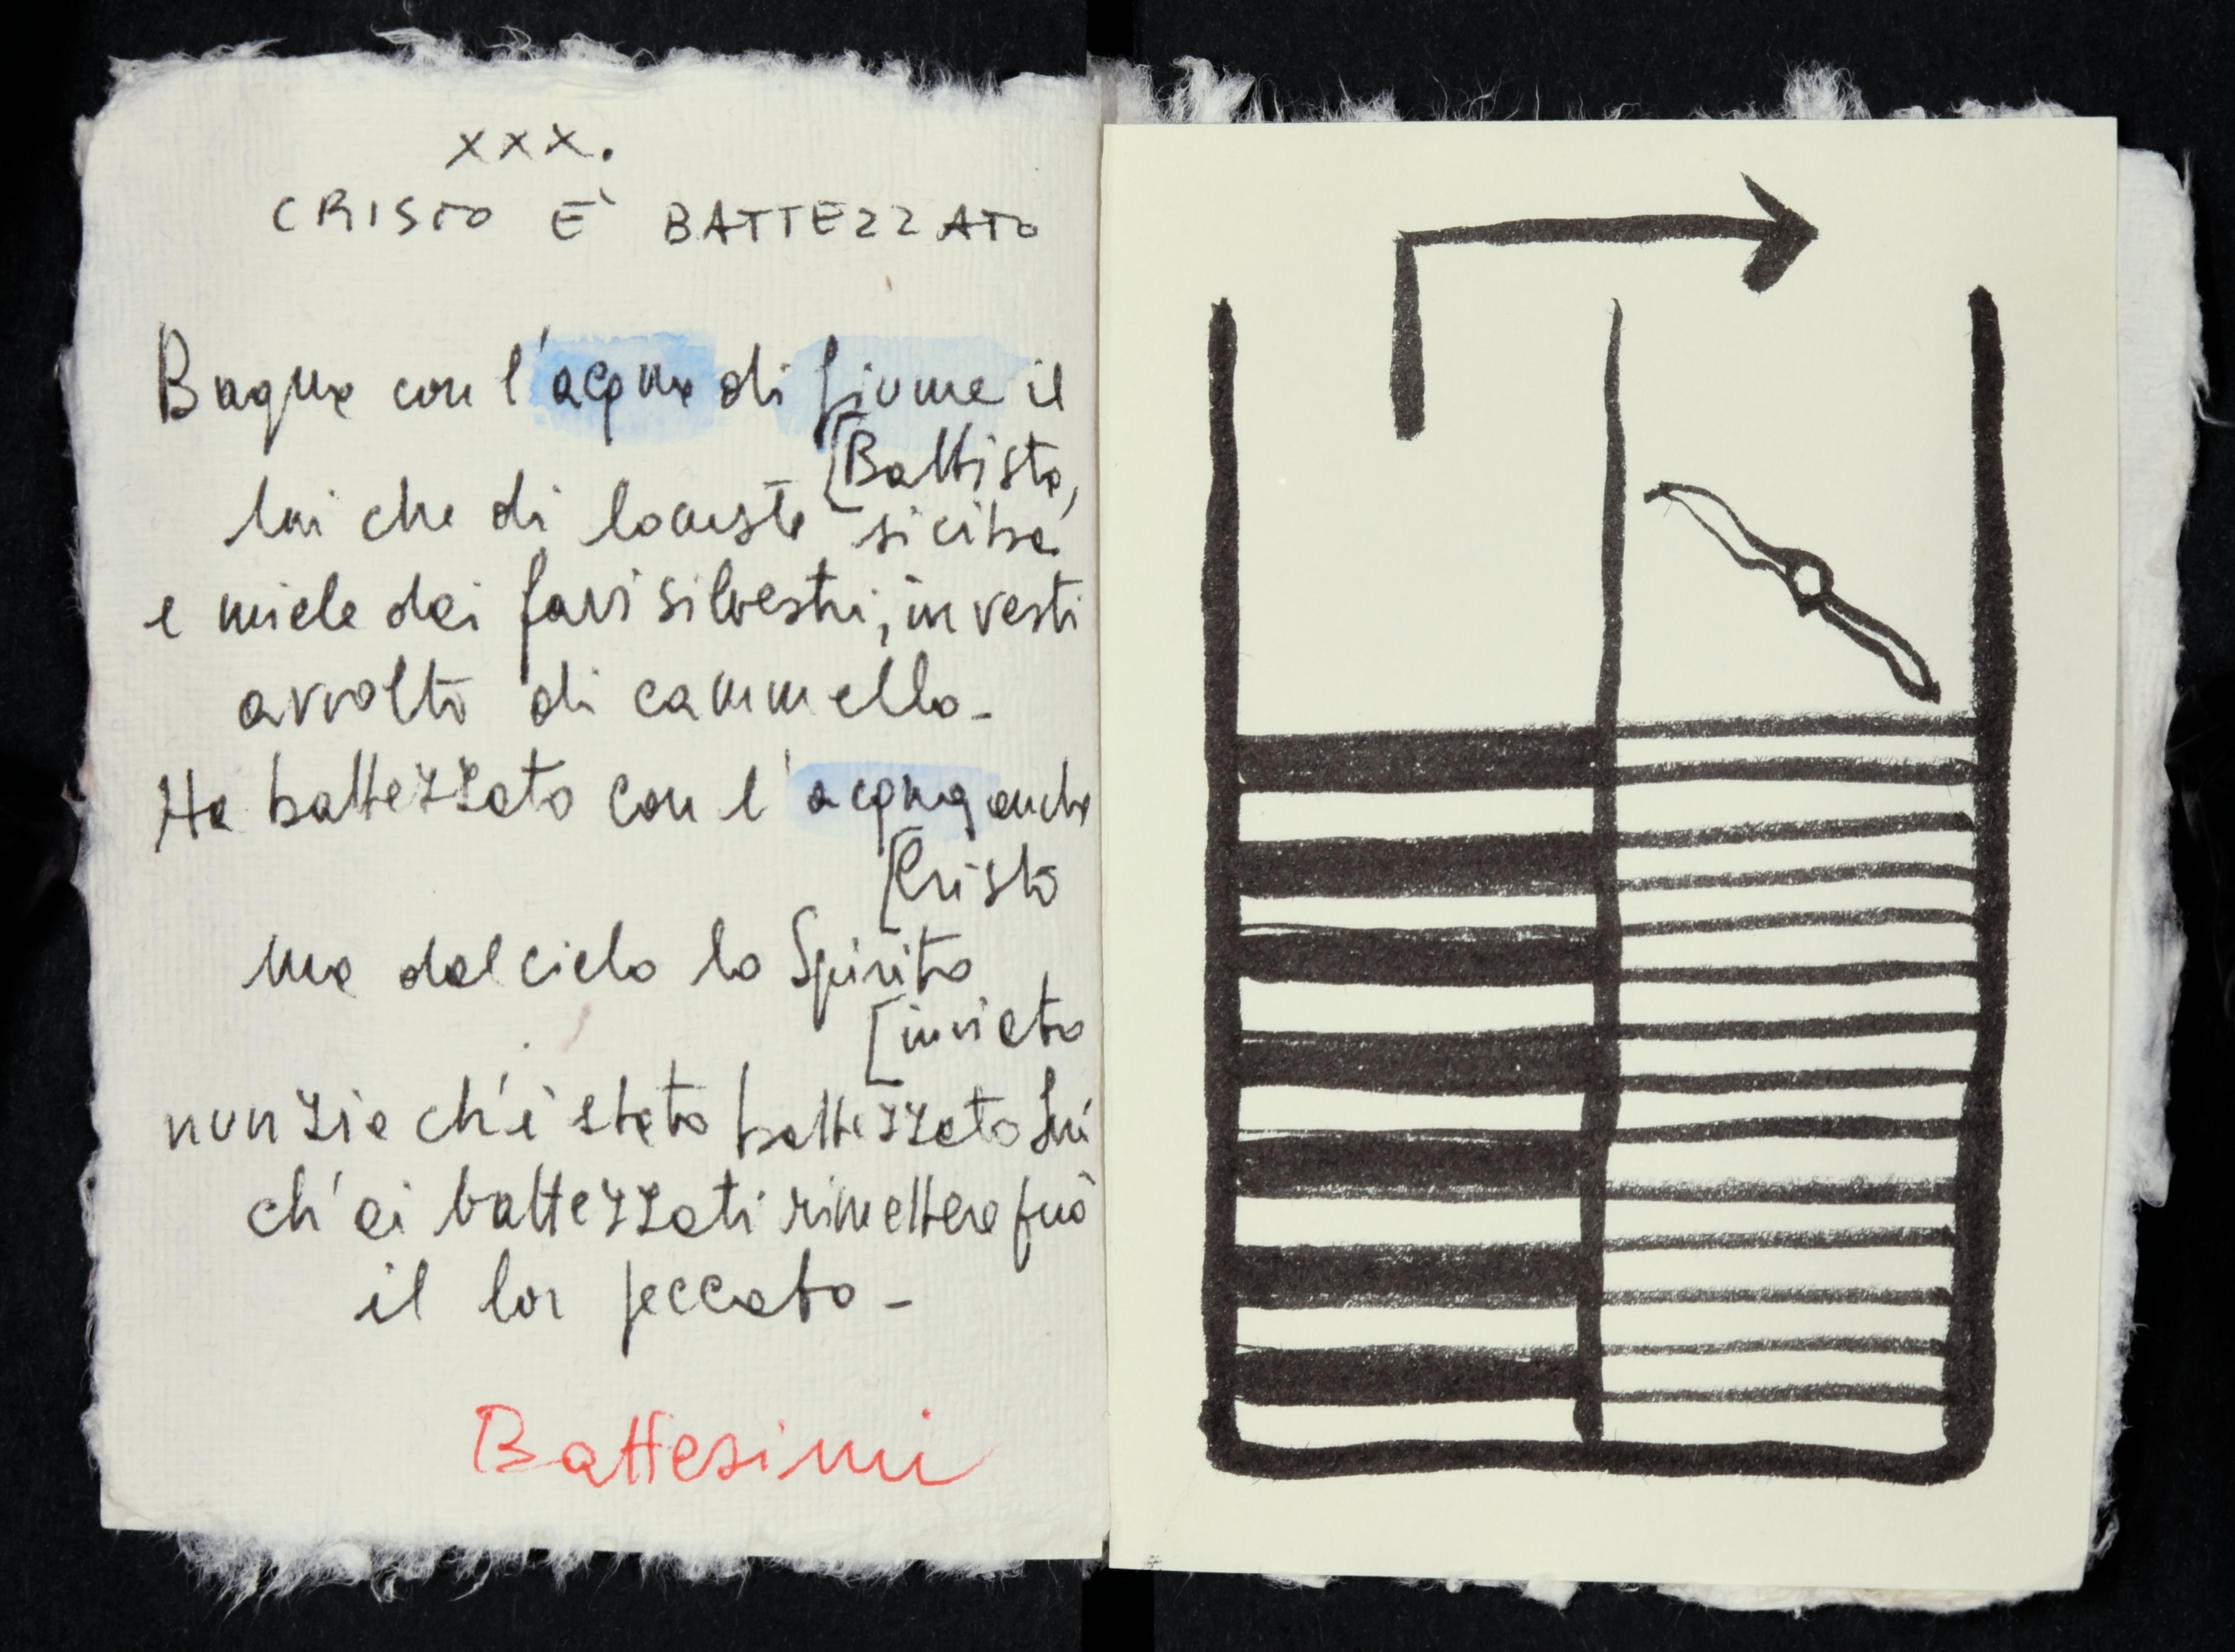 XXX.
CRISTO È BATTEZZATO
Bagna con l'acqua di fiume il
[Battista,
lui che di locuste si ciba
e miele dei favi silvestri, in vesti
avvolto di cammello-
Ha battezzato con l'acqua anche
[Cristo
ma dal cielo lo Spirito
[inviato
nunzia ch'è stato battezzato Lui
ch'ai battezzati rimettere può
il lor peccato-
Battesimi